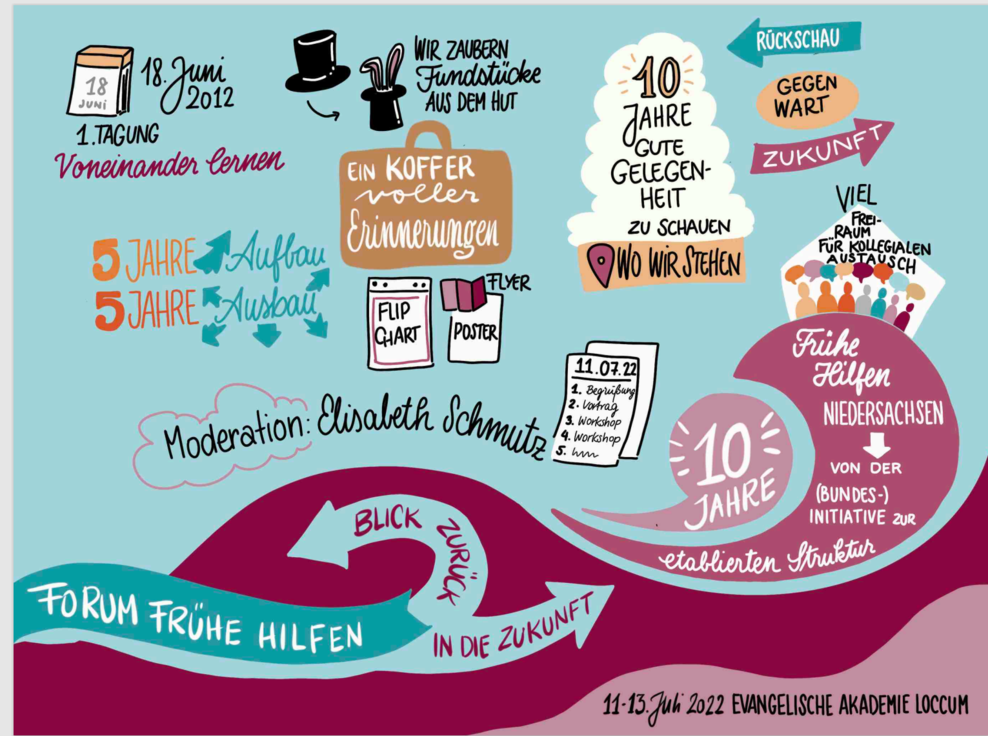 18
JUNI
18. Juni
2012
1. TAGUNG
Voneinander lernen
WIR ZAUBERN
Fundstücke
AUS DEM HUT
EIN KOFFER
voller
Erinnerungen
10
JAHRE
GUTE
GELEGEN-
HEIT
ZU SCHAUEN
WO WIR STEHEN
RÜCKSCHAU
GEGEN
WART
ZUKUNFT
VIEL
FREI-
RAUM
FÜR KOLLEGIALEN
AUSTAUSCH
5 JAHRE Aufbau
5 JAHRE Ausbau
FLIP
CHART
FLYER
POSTER
11.07.22
1. Begrüßung
2. Vortrag
3. Workshop
4. Workshop
5.
Moderation: Elisabeth Schmutz
10
JAHRE
Frühe
Hilfen
NIEDERSACHSEN
VON DER
(BUNDES-)
INITIATIVE ZUR
etablierten Struktur
BLICK ZURÜCK
IN DIE ZUKUNFT
FORUM FRÜHE HILFEN
11-13. Juli 2022 EVANGELISCHE AKADEMIE LOCCUM